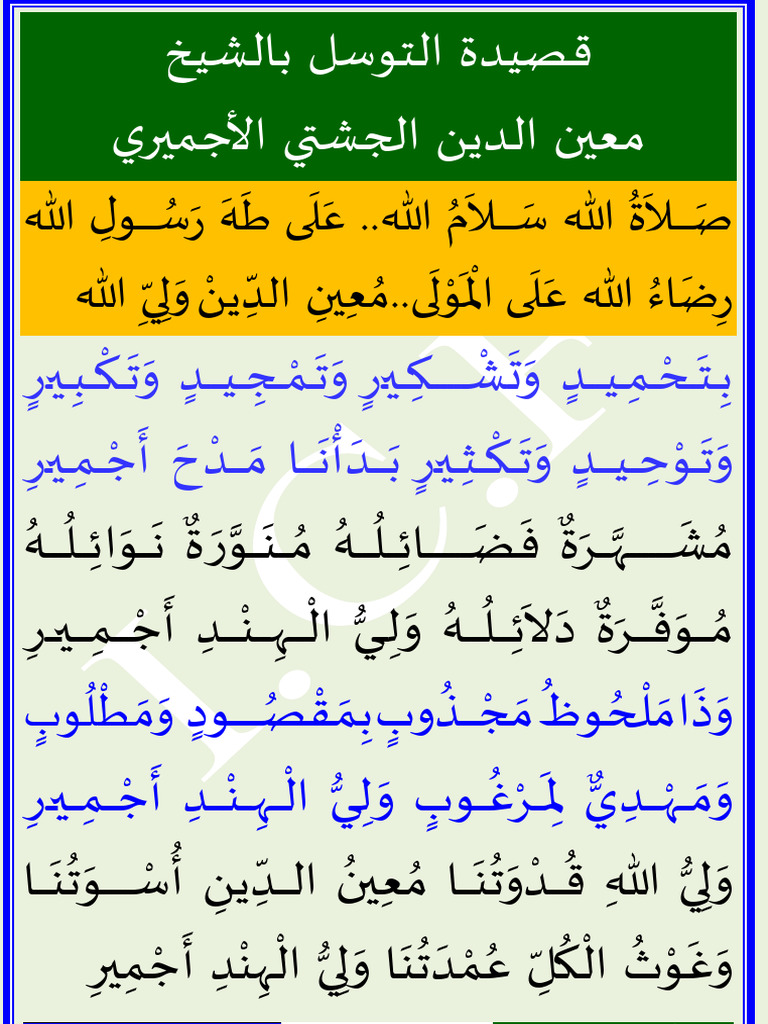 قصيدة التوسل بالشيخ
معين الدين الجشتي الأجميري
صَلاَةُ الله سَلاَمُ الله.. عَلَى طَهَ رَسُولِ الله
رِضَاءُ الله عَلَى الْمَوْلَى..مُعِينِ الدِّينْ وَلِيِّ الله
بِتَحْمِيدٍ وَتَشْكِيرٍ وَتَمْجِيدٍ وَتَكْبِيرٍ
وَتَوْحِيدٍ وَتَكْثِيرٍ بَدَأْنَا مَدْحَ أَجْمِيرِ
مُشَهَّرَةٌ فَضَائِلُهُ مُنَوَّرَةٌ نَوَائِلُهُ
مُوَفَّرَةٌ دَلاَئِلُهُ وَلِيُّ الْهِنْدِ أَجْمِيرِ
وَذَا مَلْحُوظُ مَجْذُوبٍ بِمَقْصُودٍ وَمَطْلُوبٍ
وَمَهْدِيٌّ لِمَرْغُوبٍ وَلِيُّ الْهِنْدِ أَجْمِيرِ
وَلِيُّ اللهِ قُدْوَتُنَا مُعِينُ الدِّينِ أُسْوَتُنَا
وَغَوْثُ الْكُلِّ عُمْدَتُنَا وَلِيُّ الْهِنْدِ أَجْمِيرِ